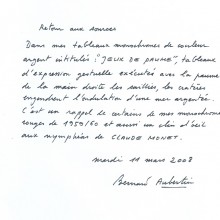 Retour aux sources
Dans mes tableaux monochromes de couleur
argent intitulés "JEUX DE PAUMES", tableaux
d'expression gestuelle exécutés avec la paume
de la main droite les saillies, les cratères
engendrent l'ondulation d'une mer argentée.
C'est un rappel de certains de mes monochromes
rouges de 1959/60 et aussi un clin d'œil
aux nymphéas de CLAUDE MONET.
mardi 11 mars 2008
Bernard Aubertin